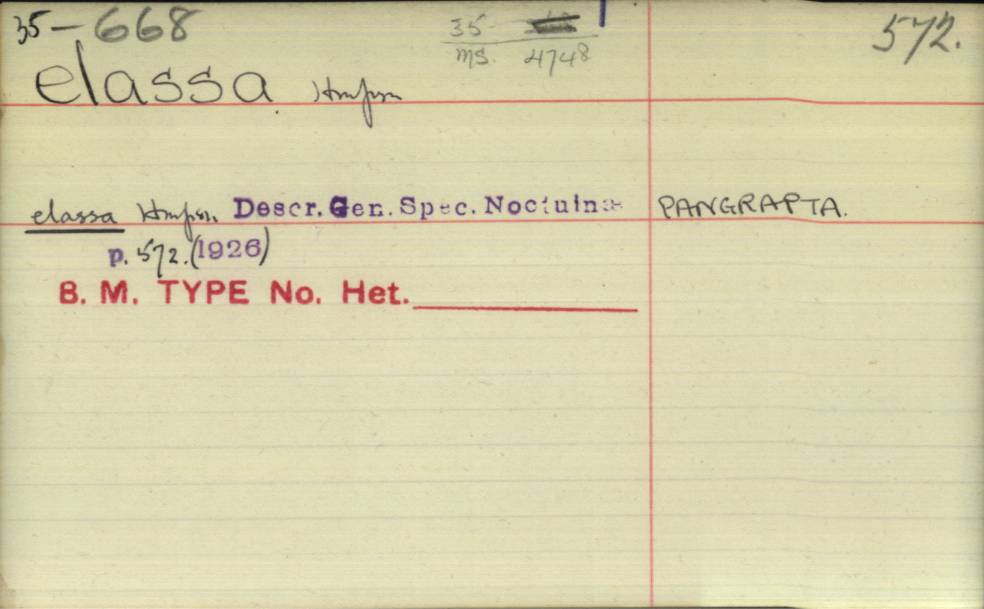 35-668
35
MS. 4748
572.
elassa Hmpsn
elassa Hmpsn. Descr. Gen. Spec. Noctuinae PANGRAPTA.
p. 572. (1926)
B. M. TYPE No. Het.